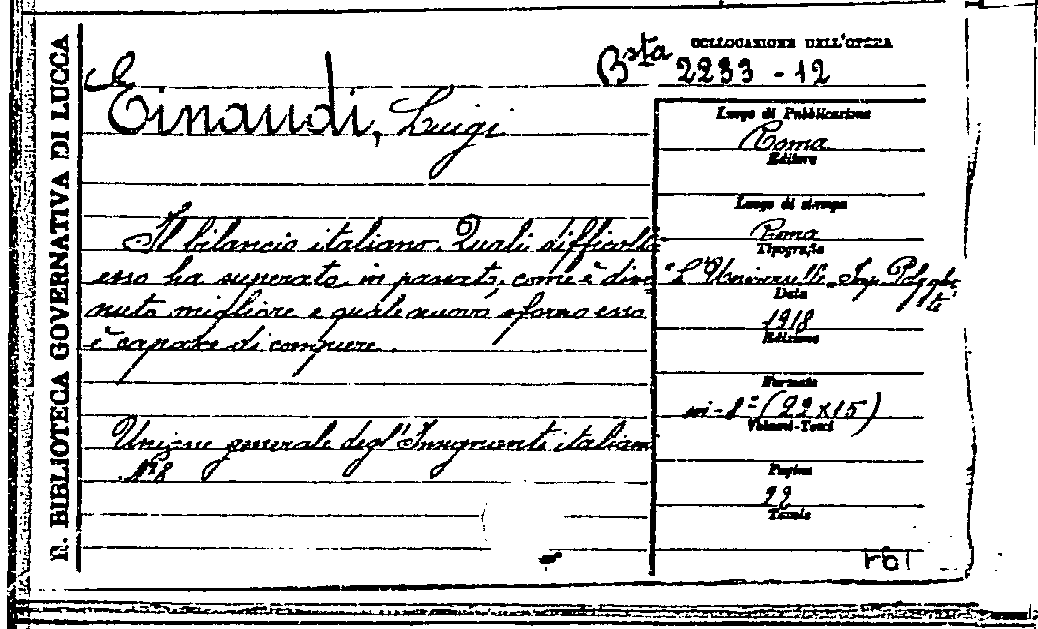 R. BIBLIOTECA GOVERNATIVA DI LUCCA
COLLOCAZIONE DELL'OPERA
Bsta 2233 - 12
Einaudi, Luigi
Il bilancio italiano. Quali difficoltà
esso ha superato in passato, come è dive-
nuto migliore e quale nuovo sforzo esso
è capace di compiere.
Unione generale degl'Insegnanti italiani
N° 8
Luogo di Pubblicazione
Roma
Editore
Luogo di stampa
Roma
Tipografia
"L'Universelle" Imp. Polyglotte
Data
1918
Edizione
Formato
in-8° (22x15)
Volumi-Tomi
Pagine
22
Tavole